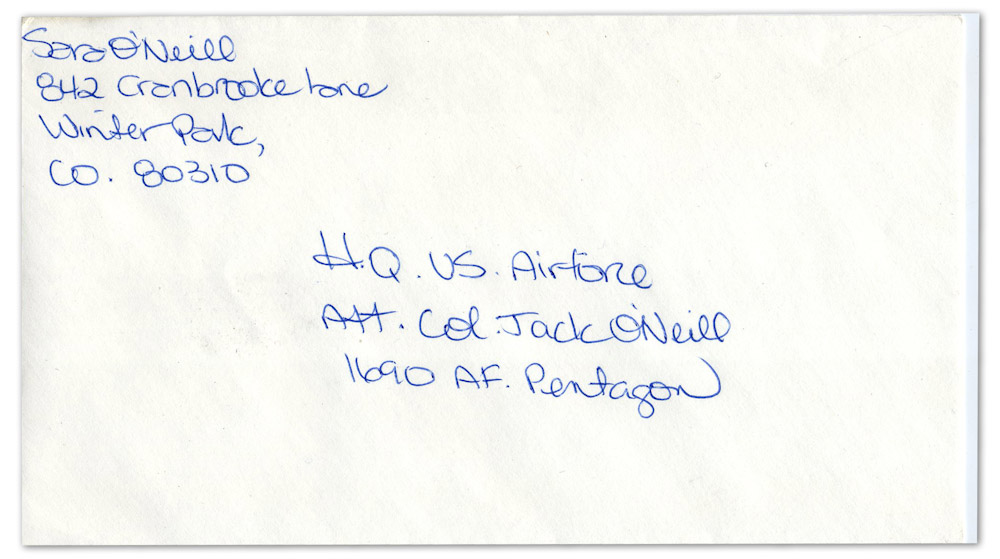 Sara O'Neill
842 Cranbrooke Lane
Winter Park,
CO. 80310
H.Q. US. Airforce
Att. Col. Jack O'Neill
1690 AF. Pentagon